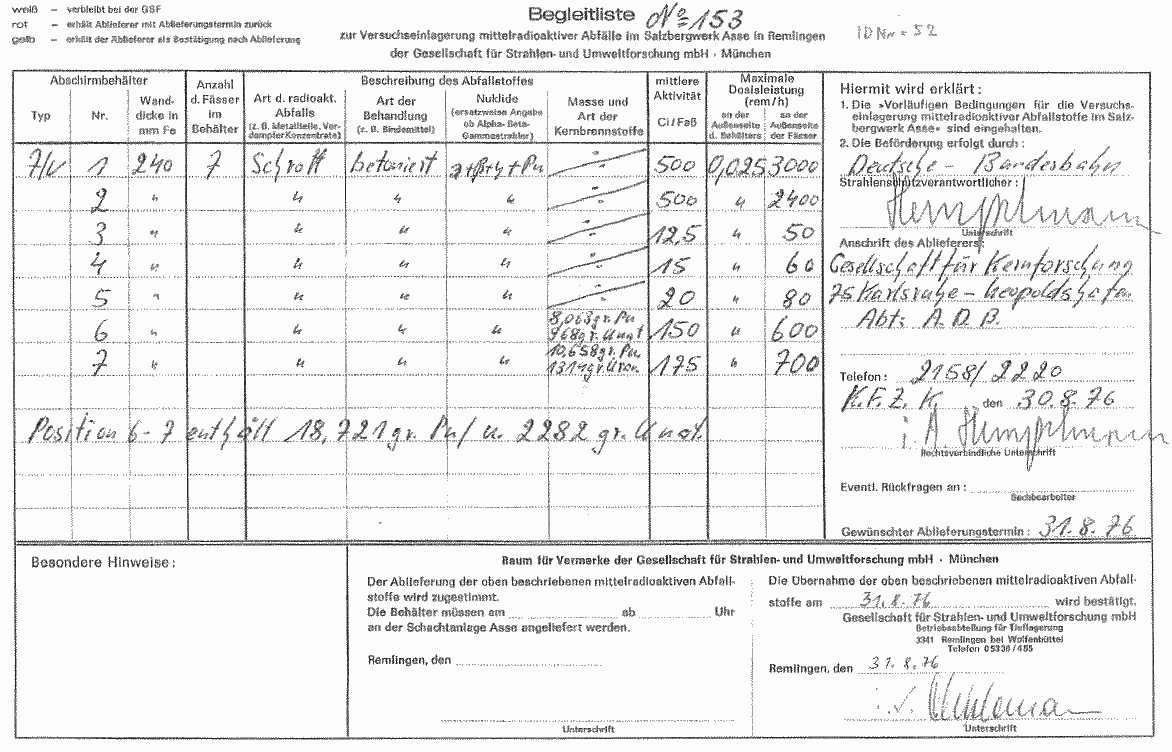 weiß – verbleibt bei der GSF
rot – erhält Ablieferer mit Ablieferungstermin zurück
gelb – erhält der Ablieferer als Bestätigung nach Ablieferung
Begleitliste No 153
zur Versuchseinlagerung mittelradioaktiver Abfälle im Salzbergwerk Asse in Remlingen
der Gesellschaft für Strahlen- und Umweltforschung mbH · München
IDNr = 52
Abschirmbehälter
Typ Nr. Wand-
dicke in
mm Fe
Anzahl
d. Fässer
im
Behälter
Beschreibung des Abfallstoffes
Art d. radioakt.
Abfalls
(z. B. Metallteile, Ver-
dampfer Konzentrate)
Art der
Behandlung
(z. B. Bindemittel)
Nuklide
(ersatzweise Angabe
ob Alpha- Beta-
Gammastrahler)
Masse und
Art der
Kernbrennstoffe
mittlere
Aktivität
Ci/Faß
Maximale
Dosisleistung
(rem/h)
an der
Außenseite
d. Behälters
an der
Außenseite
der Fässer
7/V 1 240 7 Schrott betoniert α+β+γ+Pu 500 0,025 3000
2 " " " " 500 " 2400
3 " " " " 12,5 " 50
4 " " " " 15 " 60
5 " " " " 20 " 80
6 " " " " 8,063gr. Pu 968gr. Unat 150 " 600
7 " " " " 10,658gr. Pu. 1314gr. Uran. 175 " 700
Position 6-7 enthält 18,721 gr. Pu/ u. 2282 gr. Unat.
Hiermit wird erklärt :
1. Die »Vorläufigen Bedingungen für die Versuchs-
einlagerung mittelradioaktiver Abfallstoffe im Salz-
bergwerk Asse« sind eingehalten.
2. Die Beförderung erfolgt durch :
Deutsche – Bundesbahn
Strahlenschutzverantwortlicher :
Unterschrift
Anschrift des Ablieferers:
Gesellschaft für Kernforschung
75 Karlsruhe – Leopoldshafen
Abt: A.D.B.
Telefon : 2158/2220
K.F.Z.K. , den 30.8.76
i. A.
Rechtsverbindliche Unterschrift
Eventl. Rückfragen an :
Sachbearbeiter
Gewünschter Ablieferungstermin : 31.8.76
Besondere Hinweise :
Raum für Vermerke der Gesellschaft für Strahlen- und Umweltforschung mbH · München
Der Ablieferung der oben beschriebenen mittelradioaktiven Abfall-
stoffe wird zugestimmt.
Die Behälter müssen am ab Uhr
an der Schachtanlage Asse angeliefert werden.
Remlingen, den
Unterschrift
Die Übernahme der oben beschriebenen mittelradioaktiven Abfall-
stoffe am 31.8.76 wird bestätigt.
Gesellschaft für Strahlen- und Umweltforschung mbH
Betriebsabteilung für Tieflagerung
3341 Remlingen bei Wolfenbüttel
Telefon 05336/455
Remlingen, den 31.8.76
i.V.
Unterschrift